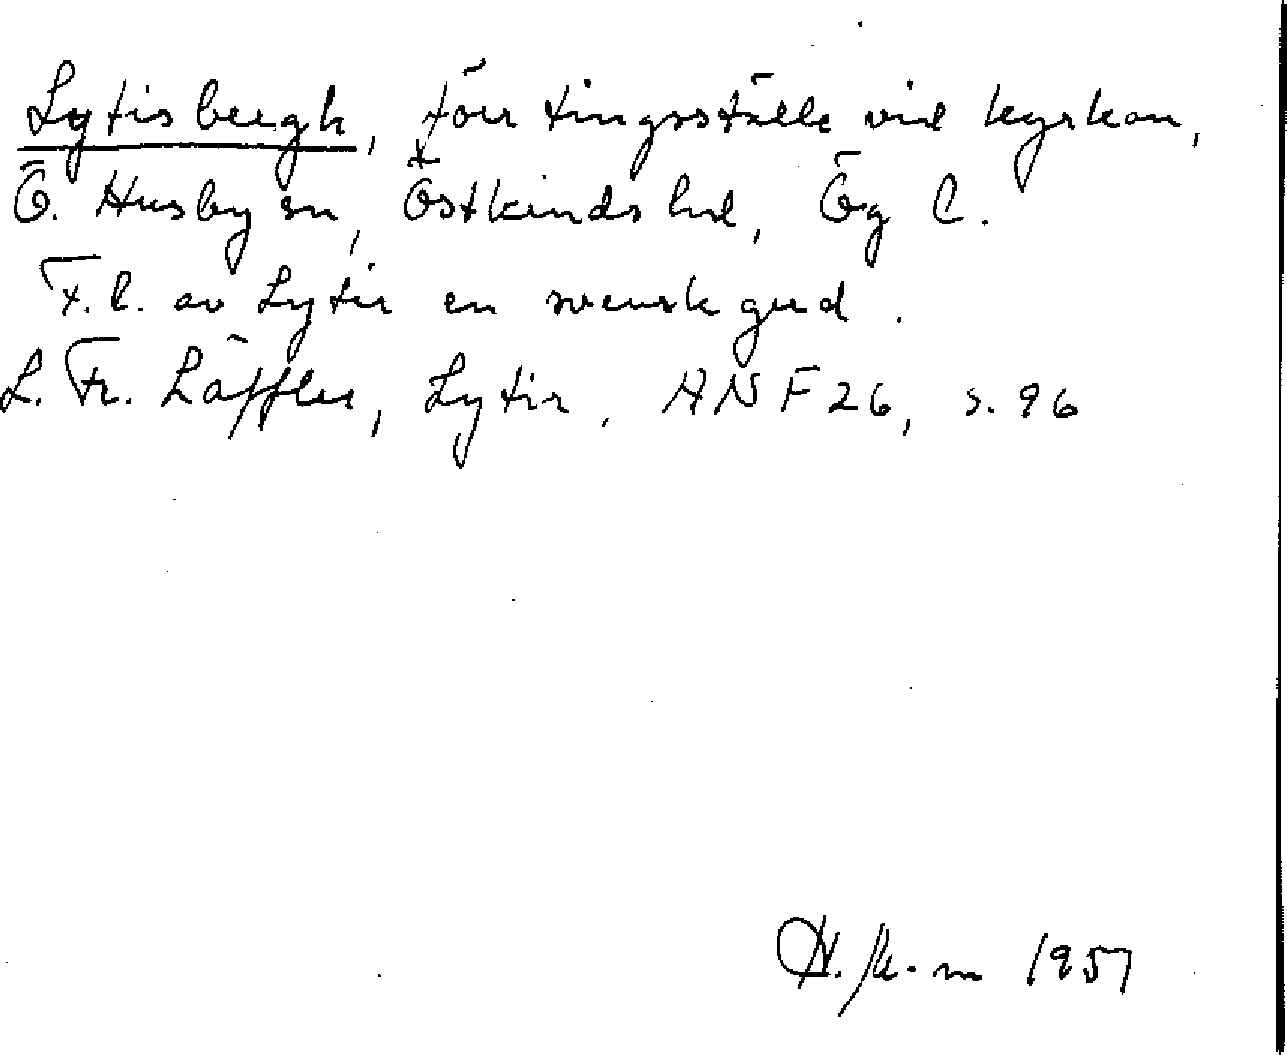 Lytisbergh, förr tingsställe vid kyrkan,
Ö. Husby sn, Östkinds hd, Ög l.
F.l. av Lytir en svensk gud.
L. Fr. Läffler, Lytir, ANF 26, s. 96
1957